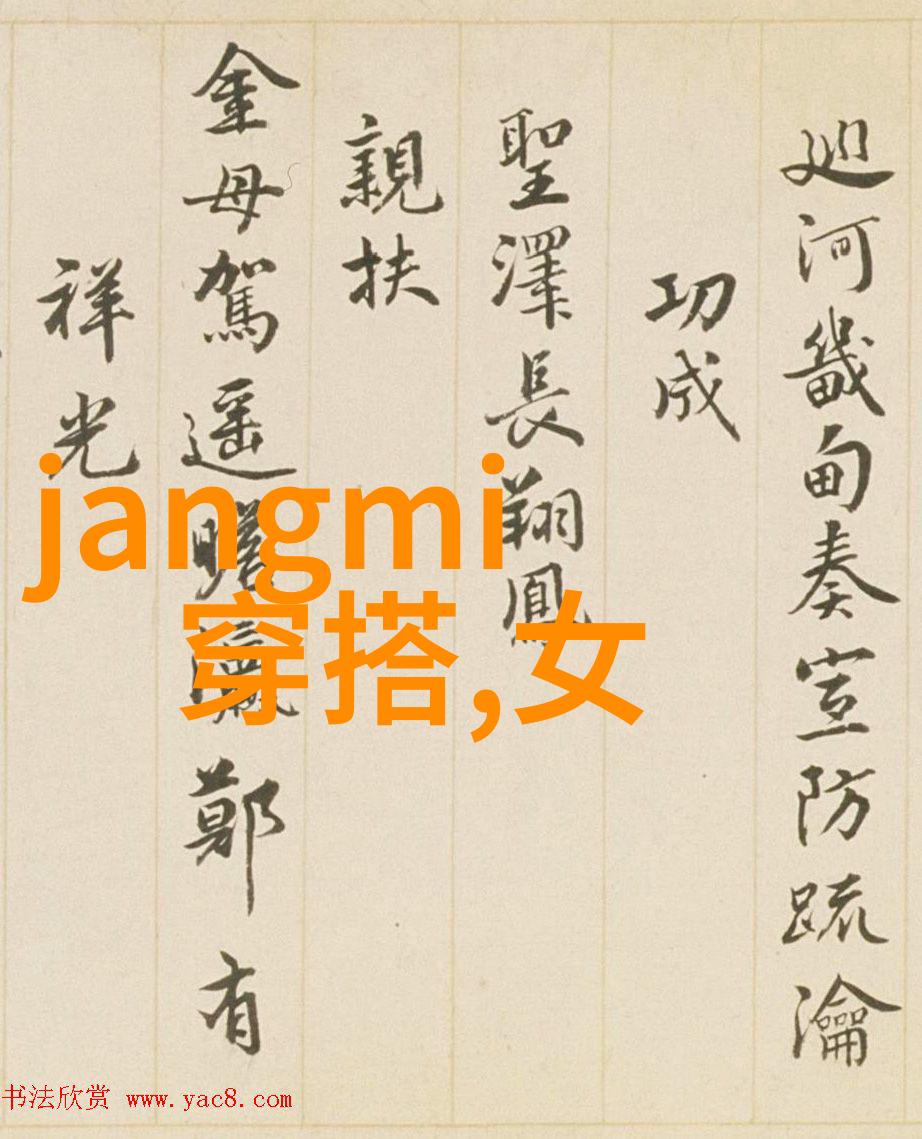 廵河畿甸奏宣防疏瀹
功成
聖澤長翔鳳
親扶
金母駕遥瞻瀛鄭有
祥光
jangmi
穿搭,女
书法欣赏 www.yac8.com